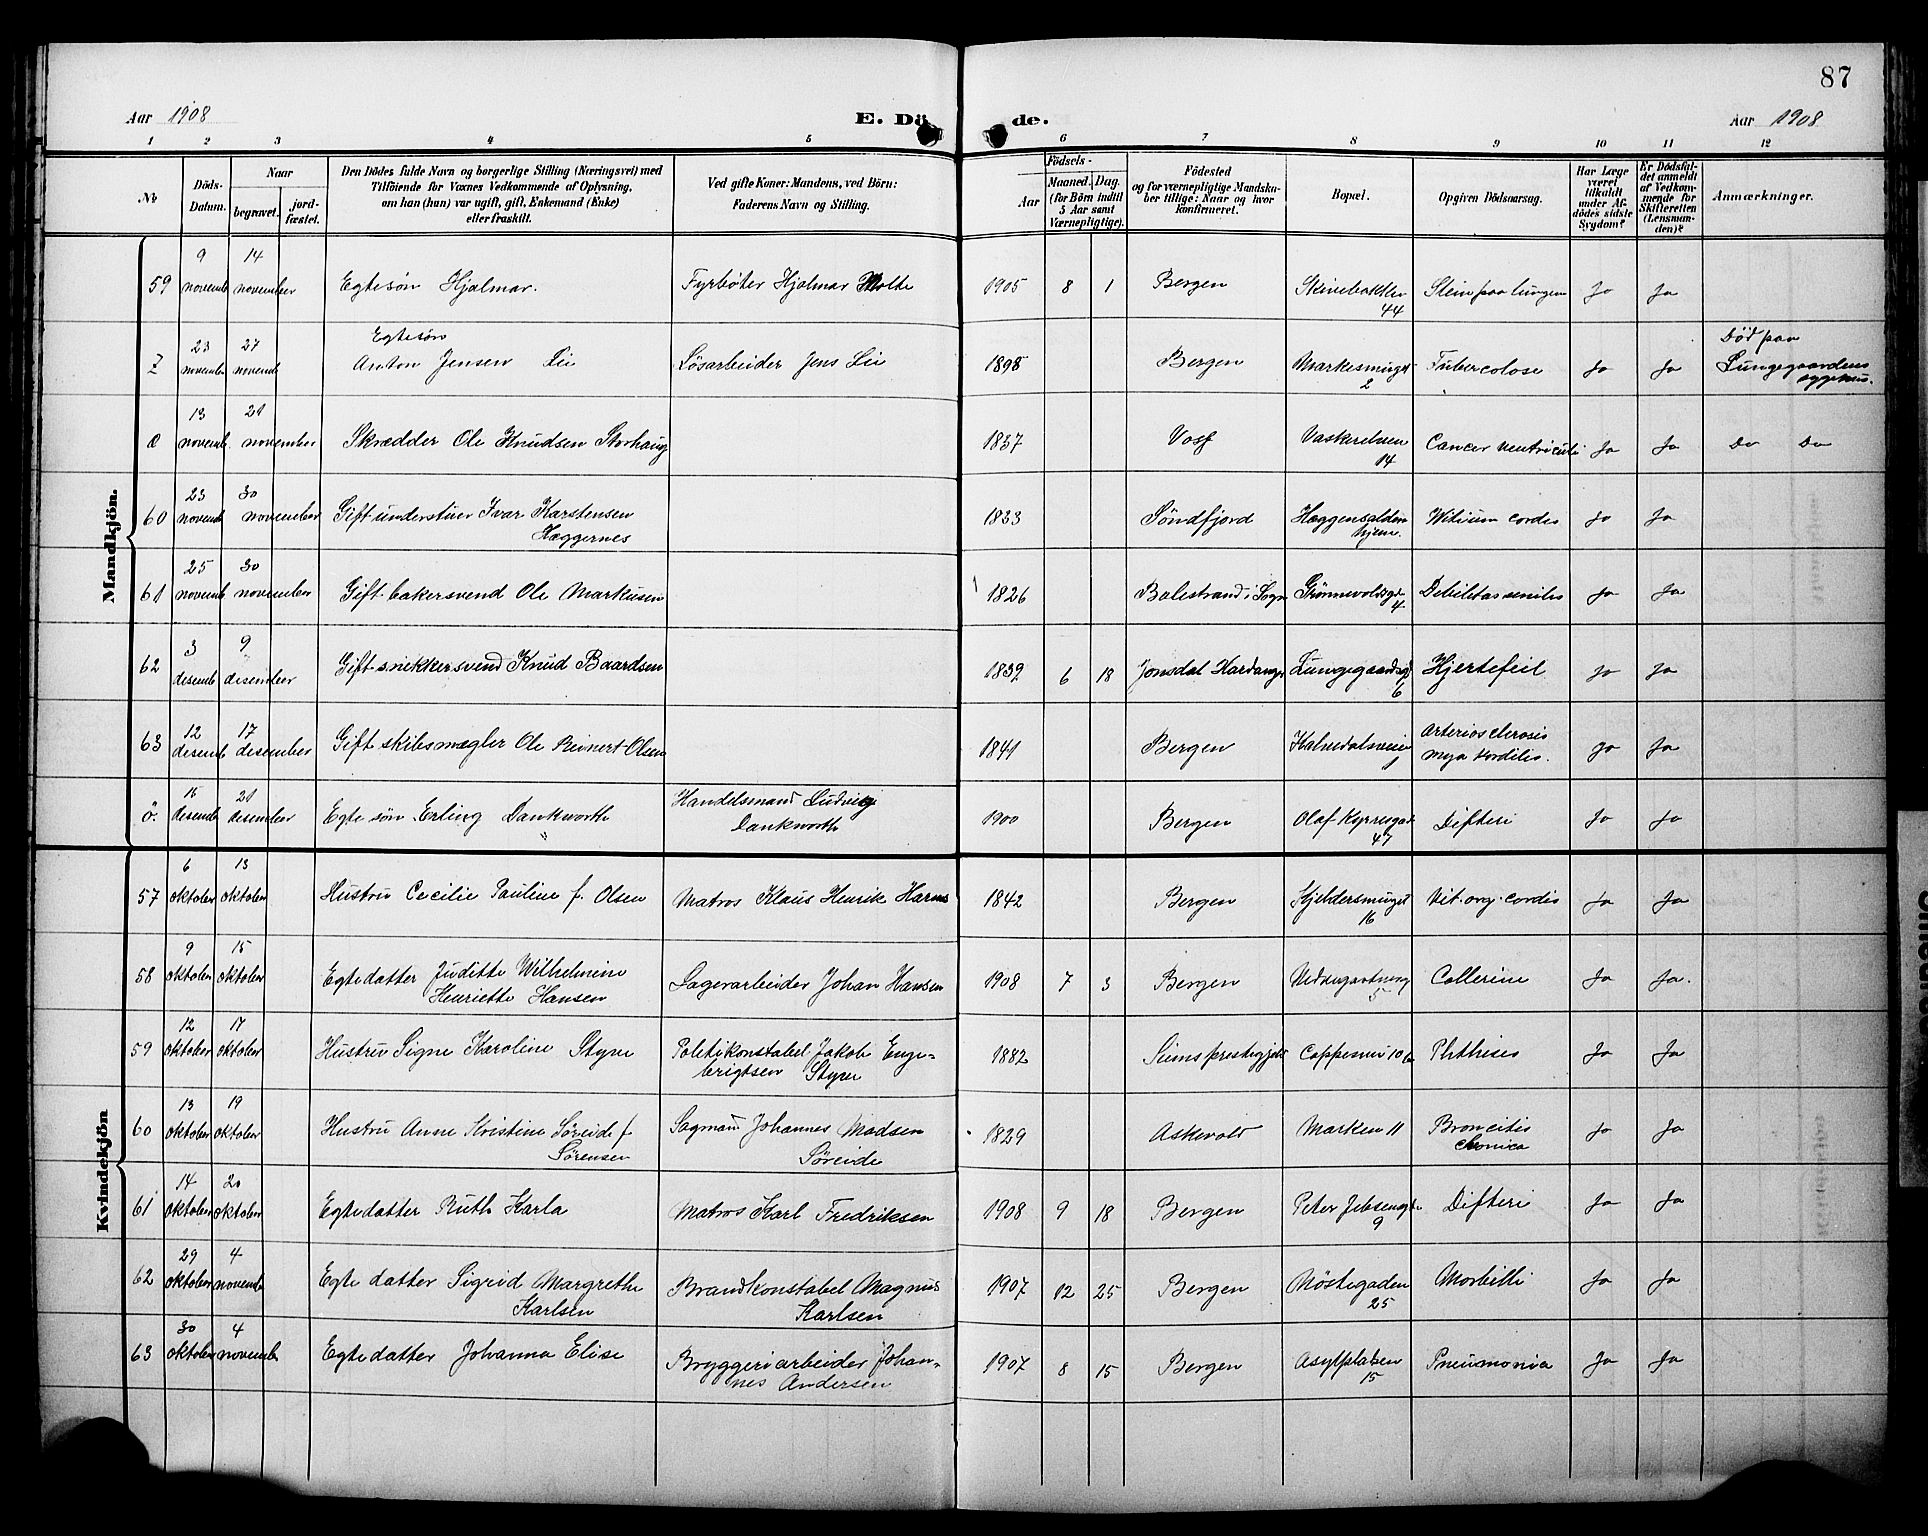 87
Aar 1908 E. Dö de. Aar 1908
1 2 3 4 5 6 7 8 9 10 11 12
No
Döds-Datum.
Naar
begravet.
jord-fæstet.
Den Dödes fulde Navn og borgerlige Stilling (Næringsvei) med
Tilföiende for Voxnes Vedkommende af Oplysning,
om han (hun) var ugift, gift, Enkemand (Enke)
eller fraskilt.
Ved gifte Koner: Mandens, ved Börn:
Faderens Navn og Stilling.
Födsels-
Aar
Maaned. Dag.
(for Börn indtil
5 Aar samt
Værnepligtige).
Födested
og for værnepligtige Mandska-
ber tillige: Naar og hvor
konfirmeret.
Bopæl.
Opgiven Dödsaarsag.
Har Læge
været
tilkaldt
under Af-
dödes sidste
Sygdom?
Er Dödsfal-
det anmeldt
af Vedkom-
mende for
Skifteretten
(Lensman-
den)?
Anmærkninger.
Mandkjön.
59 9 novemb 14 november Egtesøn Hjalmar. Fyrbøter Hjalmar Molde 1905 8 1 Bergen Steinebakken 44 Stein paa lungen Ja Ja
Z 23 novemb 27 novemb Egtesøn Anton Jensen Lie Løsarbeider Jens Lie 1898 Bergen Markesmuget 2 Tubercolose Ja Ja Død paa Lungegaardens sygehus.
Æ 13 novemb. 21 november Skrædder Ole Knudsen Storhaug 1837 Voss 14 Cancer ventriculi Ja Ja Do Do
60 23 novemb 30 november Gift understuer Ivar Karstensen Hæggernes 1833 Søndfjord hjem. Witium cordis Ja Ja
61 25 novemb 30 november Gift bakersvend Ole Markusen 1826 Balestrand i Sogn Grønnevoldsgd 4 Debilitas senilis Ja Ja
62 3 desemb 9 desember Gift snekkersvend Knud Baardsen 1839 6 18 Jonsdal Hardanger Lungegaardsgd 6 Hjertefeil Ja Ja
63 12 desemb 17 desember Gift skibsmægler Ole Reinert Olsen 1841 Bergen Kalvedalsveien 1 Arteriosclerosis Ja Ja
Ö. 15 desemb 21 desember Egte søn Erling Dankworth Handelsmand Ludvig Dankworth 1900 Bergen Olaf Kyrresgad 47 Difteri Ja Ja
Kvindekjön
57 6 oktober 13 oktober Hustru Cecilie Pauline f. Olsen Matros Klaus Henrik Harms 1842 Bergen Kjeldersmuget 16 Vit. org. cordis Ja Ja
58 9 oktober 15 oktober Egte datter Juditte Wilhelmine Henriette Hansen Lagerarbeider Johan Hansen 1908 7 3 Bergen 5 Collerine Ja Ja.
59 12 oktober 17 oktober Hustru Signe Karoline Styve Politikonstabel Jakob Enge-brigtsen Styve 1882 Cappesmu 10 Phthisis Ja Ja
60 13 oktober 19 oktober Hustru Anne Kristine Søreide f Sørensen Sagmand Johannes Madsen Søreide 1829 Askevold Marken 11 Broncitis cronica Ja Ja
61 14 oktober 20 oktober Egte datter Ruth Karla Matros Karl Fredriksen 1908 9 18 Bergen Peter Jebsensgt 9 Difteri Ja Ja
62 29 oktober 4 novemb Egte datter Sigrid Margrethe Karlsen Brandkonstabel Magnus Karlsen 1907 12 25 Bergen Nöstegaden 25 Morbilli Ja Ja
63 30 oktober 4 novemb Egte datter Johanna Elise Bryggeriarbeider Johan-nes Andersen 1907 8 15 Bergen Asylpladsen 15 Pneumonia Ja Ja